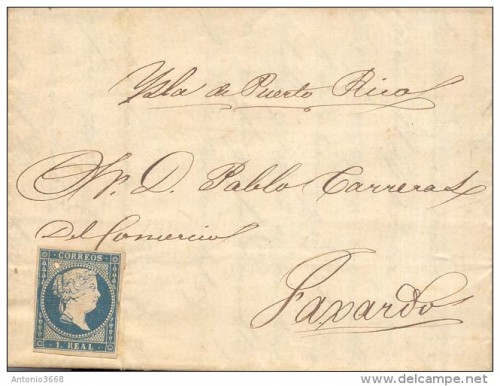 Ysla de Puerto Rico
Sr. D. Pablo Carreras
Del Comercio
CORREOS
1. REAL
Faxardo
Antonio3668
delcampe.net